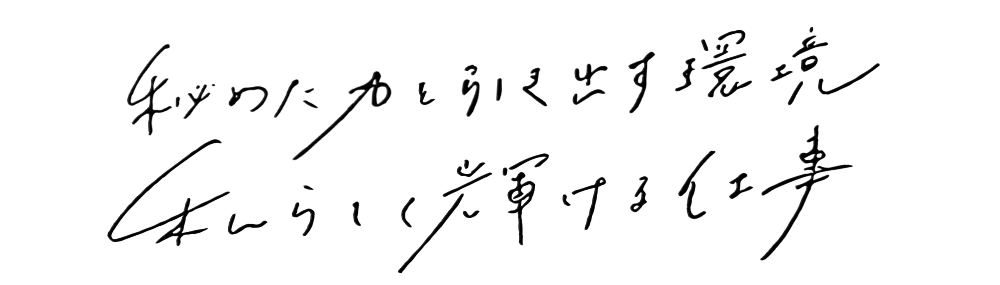 秘めた力を引き出す環境
私らしく輝ける仕事